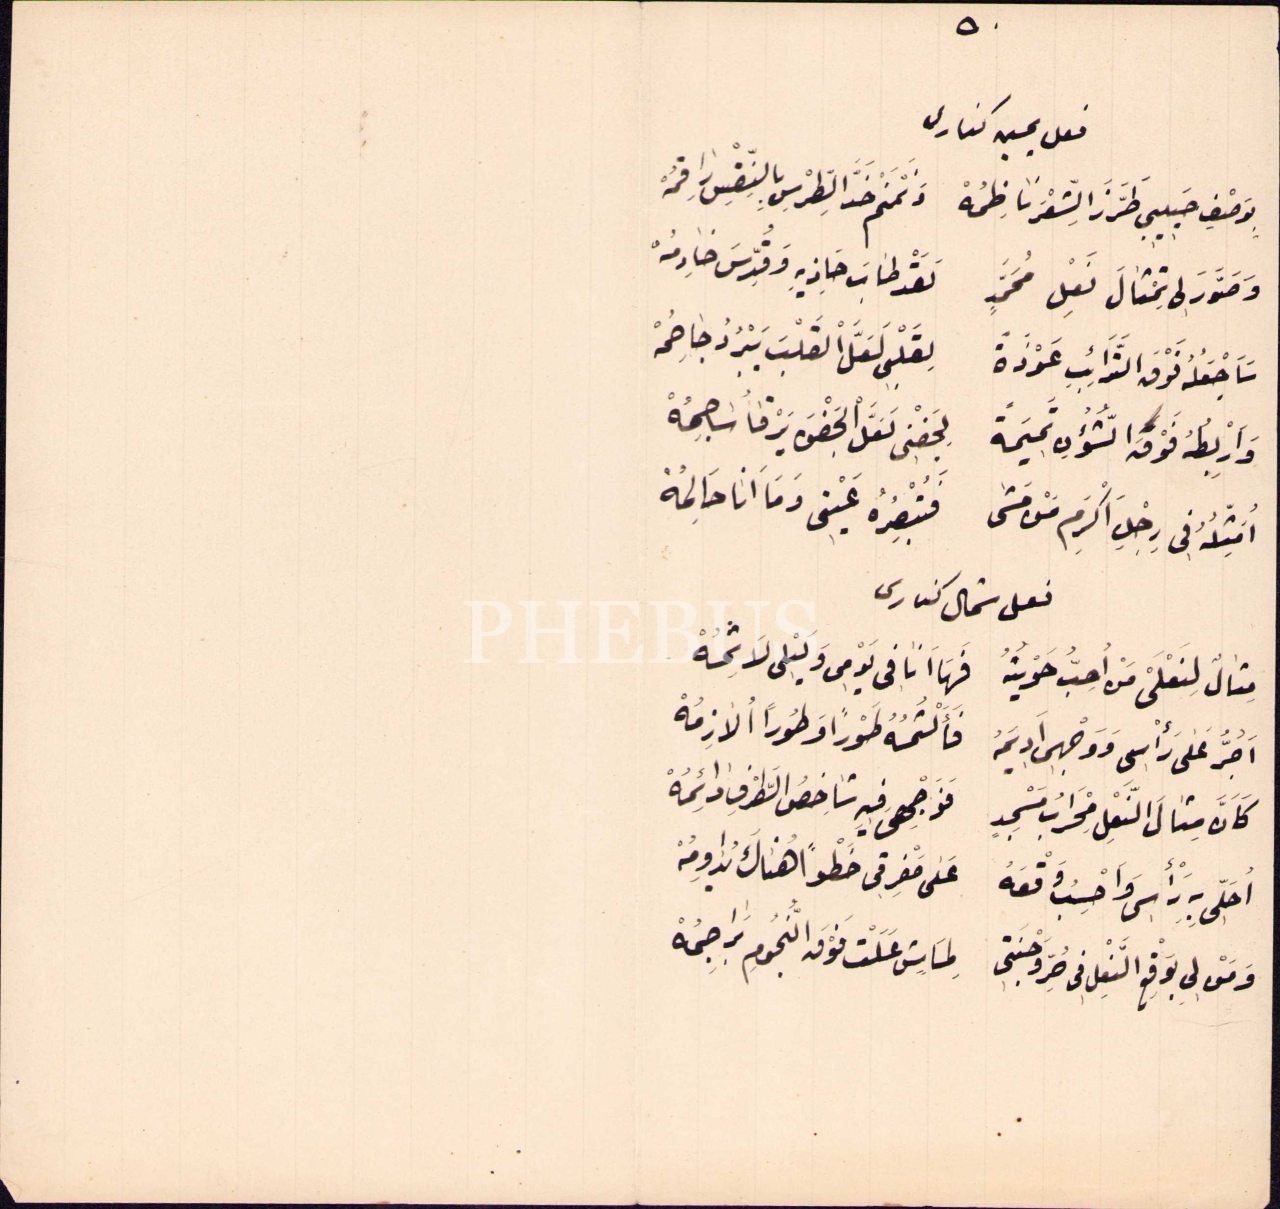 ٥٠
نعل يمين كنارى
بِوَصْفِ حَبِيبِي طَرَّزَ الشِّعْرَ نَاظِمُهْ وَنَمْنَمَ خَدَّ الطِّرْسِ بِالنِّقْسِ رَاقِمُهْ
وَصَوَّرَ لِى تِمْثَالَ نَعْلِ مُحَمَّدٍ لَقَدْ طَابَ حَاذِيهِ وَقُدِّسَ خَادِمُهْ
سَاَجْعَلُهُ فَوْقَ التَّرَائِبِ عَوْذَةً لِقَلْبِى لَعَلَّ الْقَلْبَ يَبْرُدُ جَاحِمُهْ
وَاَرْبِطُهُ فَوْقَ الشُّؤُنِ تَمِيمَةً لِجَفْنِى لَعَلَّ الْجَفْنَ يَرْقَأُ سَاجِمُهْ
اُمَثِّلُهُ فِى رِجْلِ اَكْرَمِ مَنْ مَشَى فَتُبْصِرُهُ عَيْنِى وَمَا اَنَا حَالِمُهْ
نعل شمال كنارى
PHEBUS
مِثَالٌ لِنَعْلَىْ مَنْ اُحِبُّ حَوَيْتُهُ فَهَا اَنَا فِى يَوْمِى وَلَيْلِى لَاثِمُهْ
اَجُرُّ عَلَى رَأْسِى وَوَجْهِى اَدِيمَهُ فَأَلْثُمُهُ طَوْرًا وَطَوْرًا اُلَازِمُهْ
كَاَنَّ مِثَالَ النَّعْلِ مِحْرَابُ مَسْجِدٍ فَوَجْهِى فِيهِ شَاخِصُ الطَّرْفِ دَائِمُهْ
اُحَلِّى بِهِ رَأْسِى وَاَحْسِبُ وَقْعَهُ عَلَى مَفْرِقِى خَطْوًا هُنَاكَ يُدَاوِمُهْ
وَمَنْ لِى بِوَقْعِ النَّعْلِ فِى حُرِّ وَجْنَتِى لِمَاشٍ عَلَتْ فَوْقَ النُّجُومِ بَرَاجِمُهْ